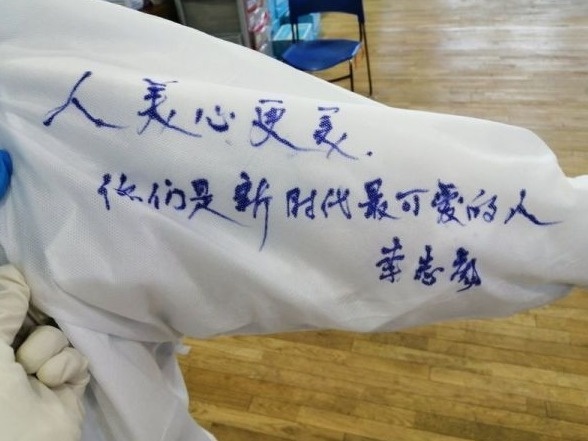 人美心更美.
你们是新时代最可爱的人